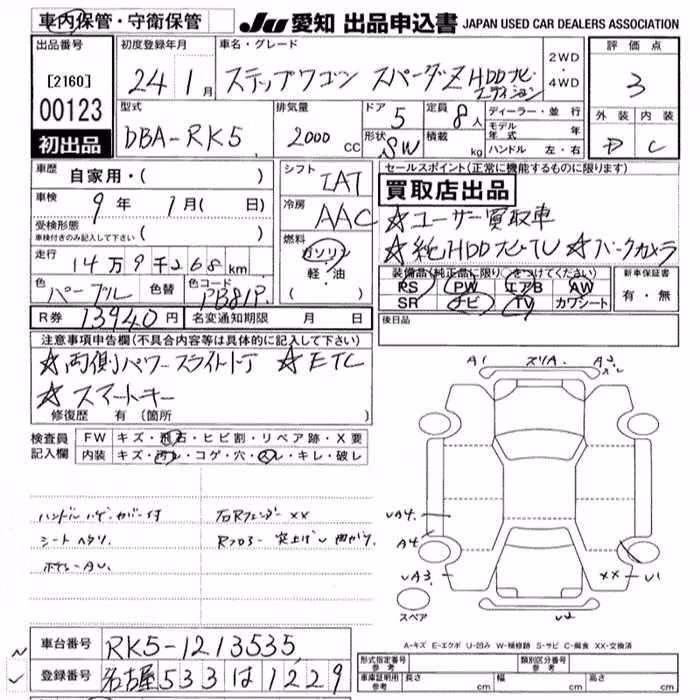 車内保管・守衛保管
JU 愛知 出品申込書 JAPAN USED CAR DEALERS ASSOCIATION
出品番号 [2160] 00123
初出品
初度登録年月 24 1月
車名・グレード ステップワゴン スパーダZ HDDナビエディション
2WD・4WD
評価点 3
外装 D 内装 C
型式 DBA-RK5
排気量 2000 CC
ドア 5
形状 SW
定員 8人
積載 kg
ディーラー・並行
モデル年式 年
ハンドル 左・右
車歴 自家用・( )
車検 9年 1月( 日)
受検形態
車検付きのみ記入して下さい ( )
走行 14万9千268km
色 パープル 色替 色コード PB81P
R券 13940円 名変通知期限 月 日
シフト IAT
冷房 AAC
燃料 ガソリン 軽・油 ( )
セールスポイント(正常に機能するものに限ります)
買取店出品
☆ユーザー買取車
☆純HDDナビTV ☆バックカメラ
装備品(純正品に限り○をつけてください)
PS PW エアB AW
SR ナビ TV カワシート
新車保証書 有・無
後日品
注意事項申告欄(不具合内容等は具体的に記入して下さい)
☆両側パワースライドドア ☆ETC
☆スマートキー
修復歴 有(箇所 )
検査員記入欄
FW キズ・飛石・ヒビ割・リペア跡・X要
内装 キズ・汚レ・コゲ・穴・スレ・キレ・破レ
シート ヘタリ
右Rフェンダー XX
A1 スリA. A2 スレ
UA4.
A4
UA3.
XX U1
U2
スペア
A-キズ E-エクボ U-凹み W-補修跡 S-サビ C-腐食 XX-交換済
車台番号 RK5-1213535
登録番号 名古屋 533 は 1229
形式指定番号 参考 類別区分番号 参考
車庫証明用 参考 長さ cm 幅 cm 高さ cm